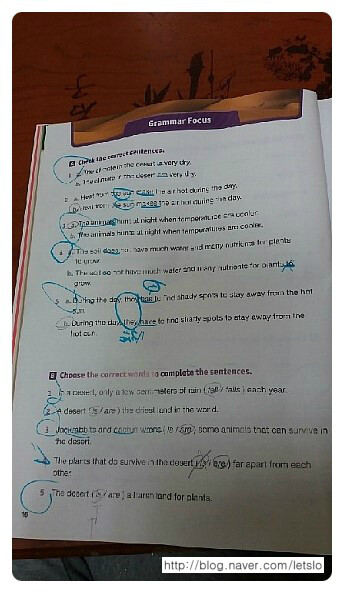 Grammar Focus
A Check the correct sentences.
1 a. The climate in the desert is very dry.
b. The climate in the desert are very dry.
2 a. Heat from the sun make the air hot during the day.
b. Heat from the sun makes the air hot during the day.
3 a. The animals hunt at night when temperatures are cooler.
b. The animals hunts at night when temperatures are cooler.
4 a. The soil does not have much water and many nutrients for plants
to grow.
b. The soil do not have much water and many nutrients for plants to
grow.
5 a. During the day, they has to find shady spots to stay away from the hot
sun.
b. During the day, they have to find shady spots to stay away from the
hot sun.
B Choose the correct words to complete the sentences.
1 In a desert, only a few centimeters of rain ( fall / falls ) each year.
2 A desert ( is / are ) the driest land in the world.
3 Jackrabbits and cactus wrens ( is / are ) some animals that can survive in
the desert.
4 The plants that do survive in the desert ( is / are ) far apart from each
other.
5 The desert ( is / are ) a harsh land for plants.
16
http://blog.naver.com/letslo